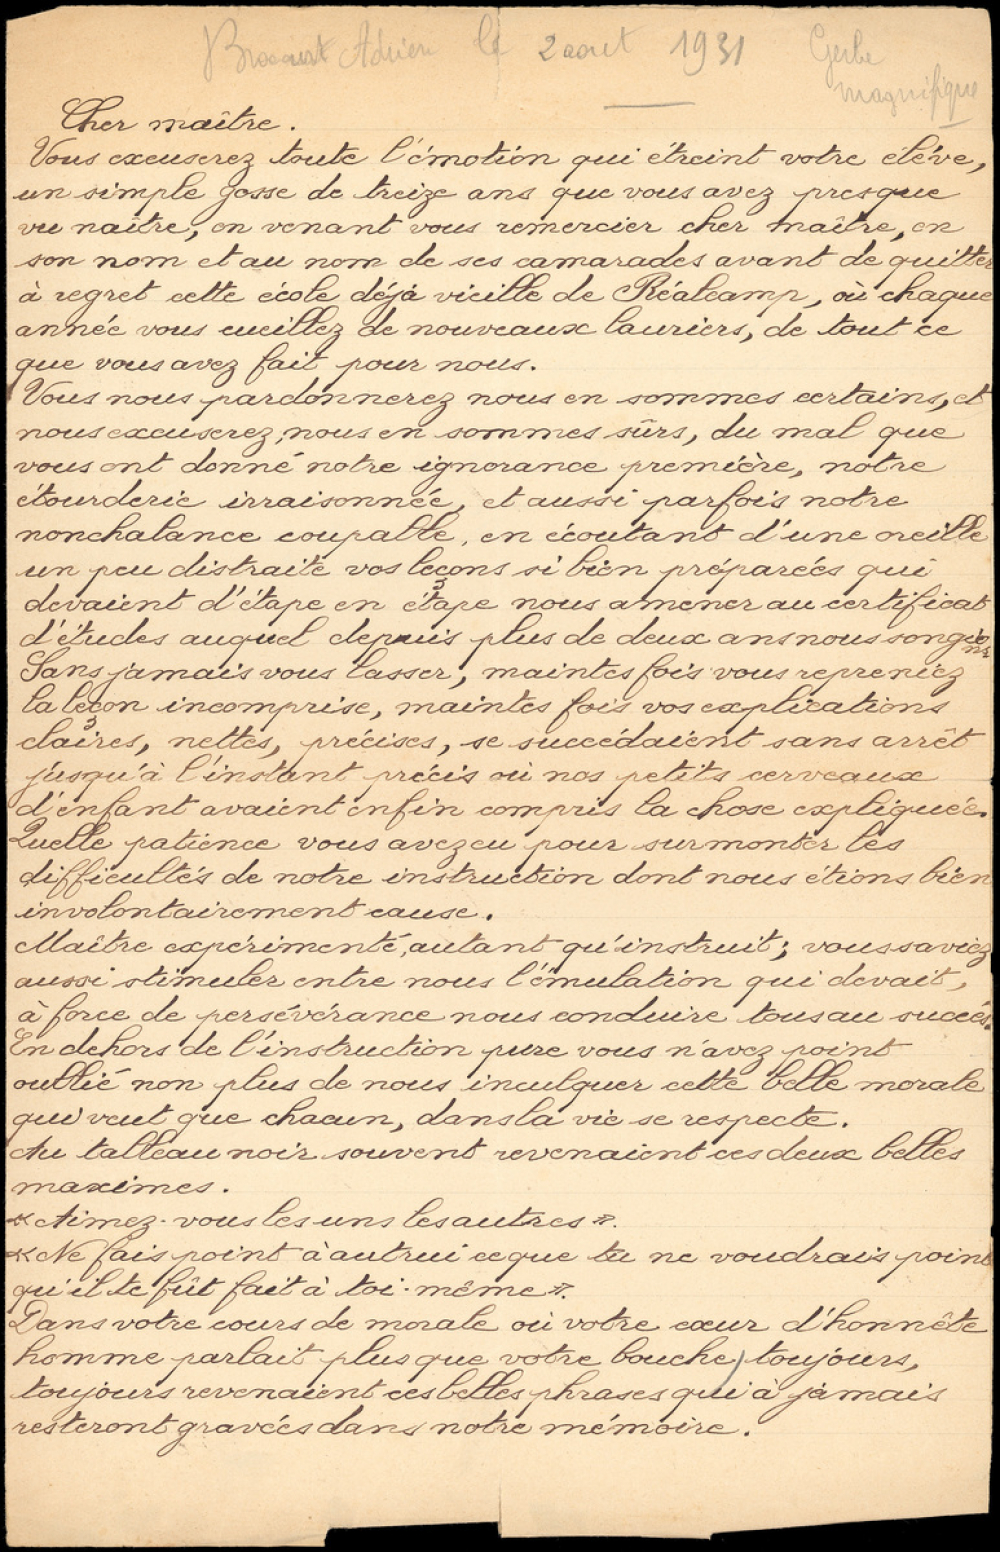 Adrien le 2 aout 1931 Gerbe
magnifique
Cher maître.
Vous excuserez toute l'émotion qui étreint votre élève,
un simple gosse de treize ans que vous avez presque
vu naître, en venant vous remercier cher maître, en
son nom et au nom de ses camarades avant de quitter
à regret cette école déjà vieille de Réalcamp, où chaque
année vous cueillez de nouveaux lauriers, de tout ce
que vous avez fait pour nous.
Vous nous pardonnerez nous en sommes certains, et
nous excuserez, nous en sommes sûrs, du mal que
vous ont donné notre ignorance première, notre
étourderie irraisonnée, et aussi parfois notre
nonchalance coupable, en écoutant d'une oreille
un peu distraite vos leçons si bien préparées qui
devaient d'étape en étape nous amener au certificat
d'études auquel depuis plus de deux ans nous songions
Sans jamais vous lasser, maintes fois vous repreniez
la leçon incomprise, maintes fois vos explications
claires, nettes, précises, se succédaient sans arrêt
jusqu'à l'instant précis où nos petits cerveaux
d'enfant avaient enfin compris la chose expliquée.
Quelle patience vous avez eu pour surmonter les
difficultés de notre instruction dont nous étions bien
involontairement cause.
Maître expérimenté, autant qu'instruit; vous saviez
aussi stimuler entre nous l'émulation qui devait,
à force de persévérance nous conduire tous au succès.
En dehors de l'instruction pure vous n'avez point
oublié non plus de nous inculquer cette belle morale
qui veut que chacun, dans la vie se respecte.
Au tableau noir souvent revenaient ces deux belles
maximes.
« Aimez-vous les uns les autres ».
« Ne fais point à autrui ce que tu ne voudrais point
qu'il te fût fait à toi-même ».
Dans votre cours de morale où votre cœur d'honnête
homme parlait plus que votre bouche, toujours,
toujours revenaient ces belles phrases qui à jamais
resteront gravées dans notre mémoire.